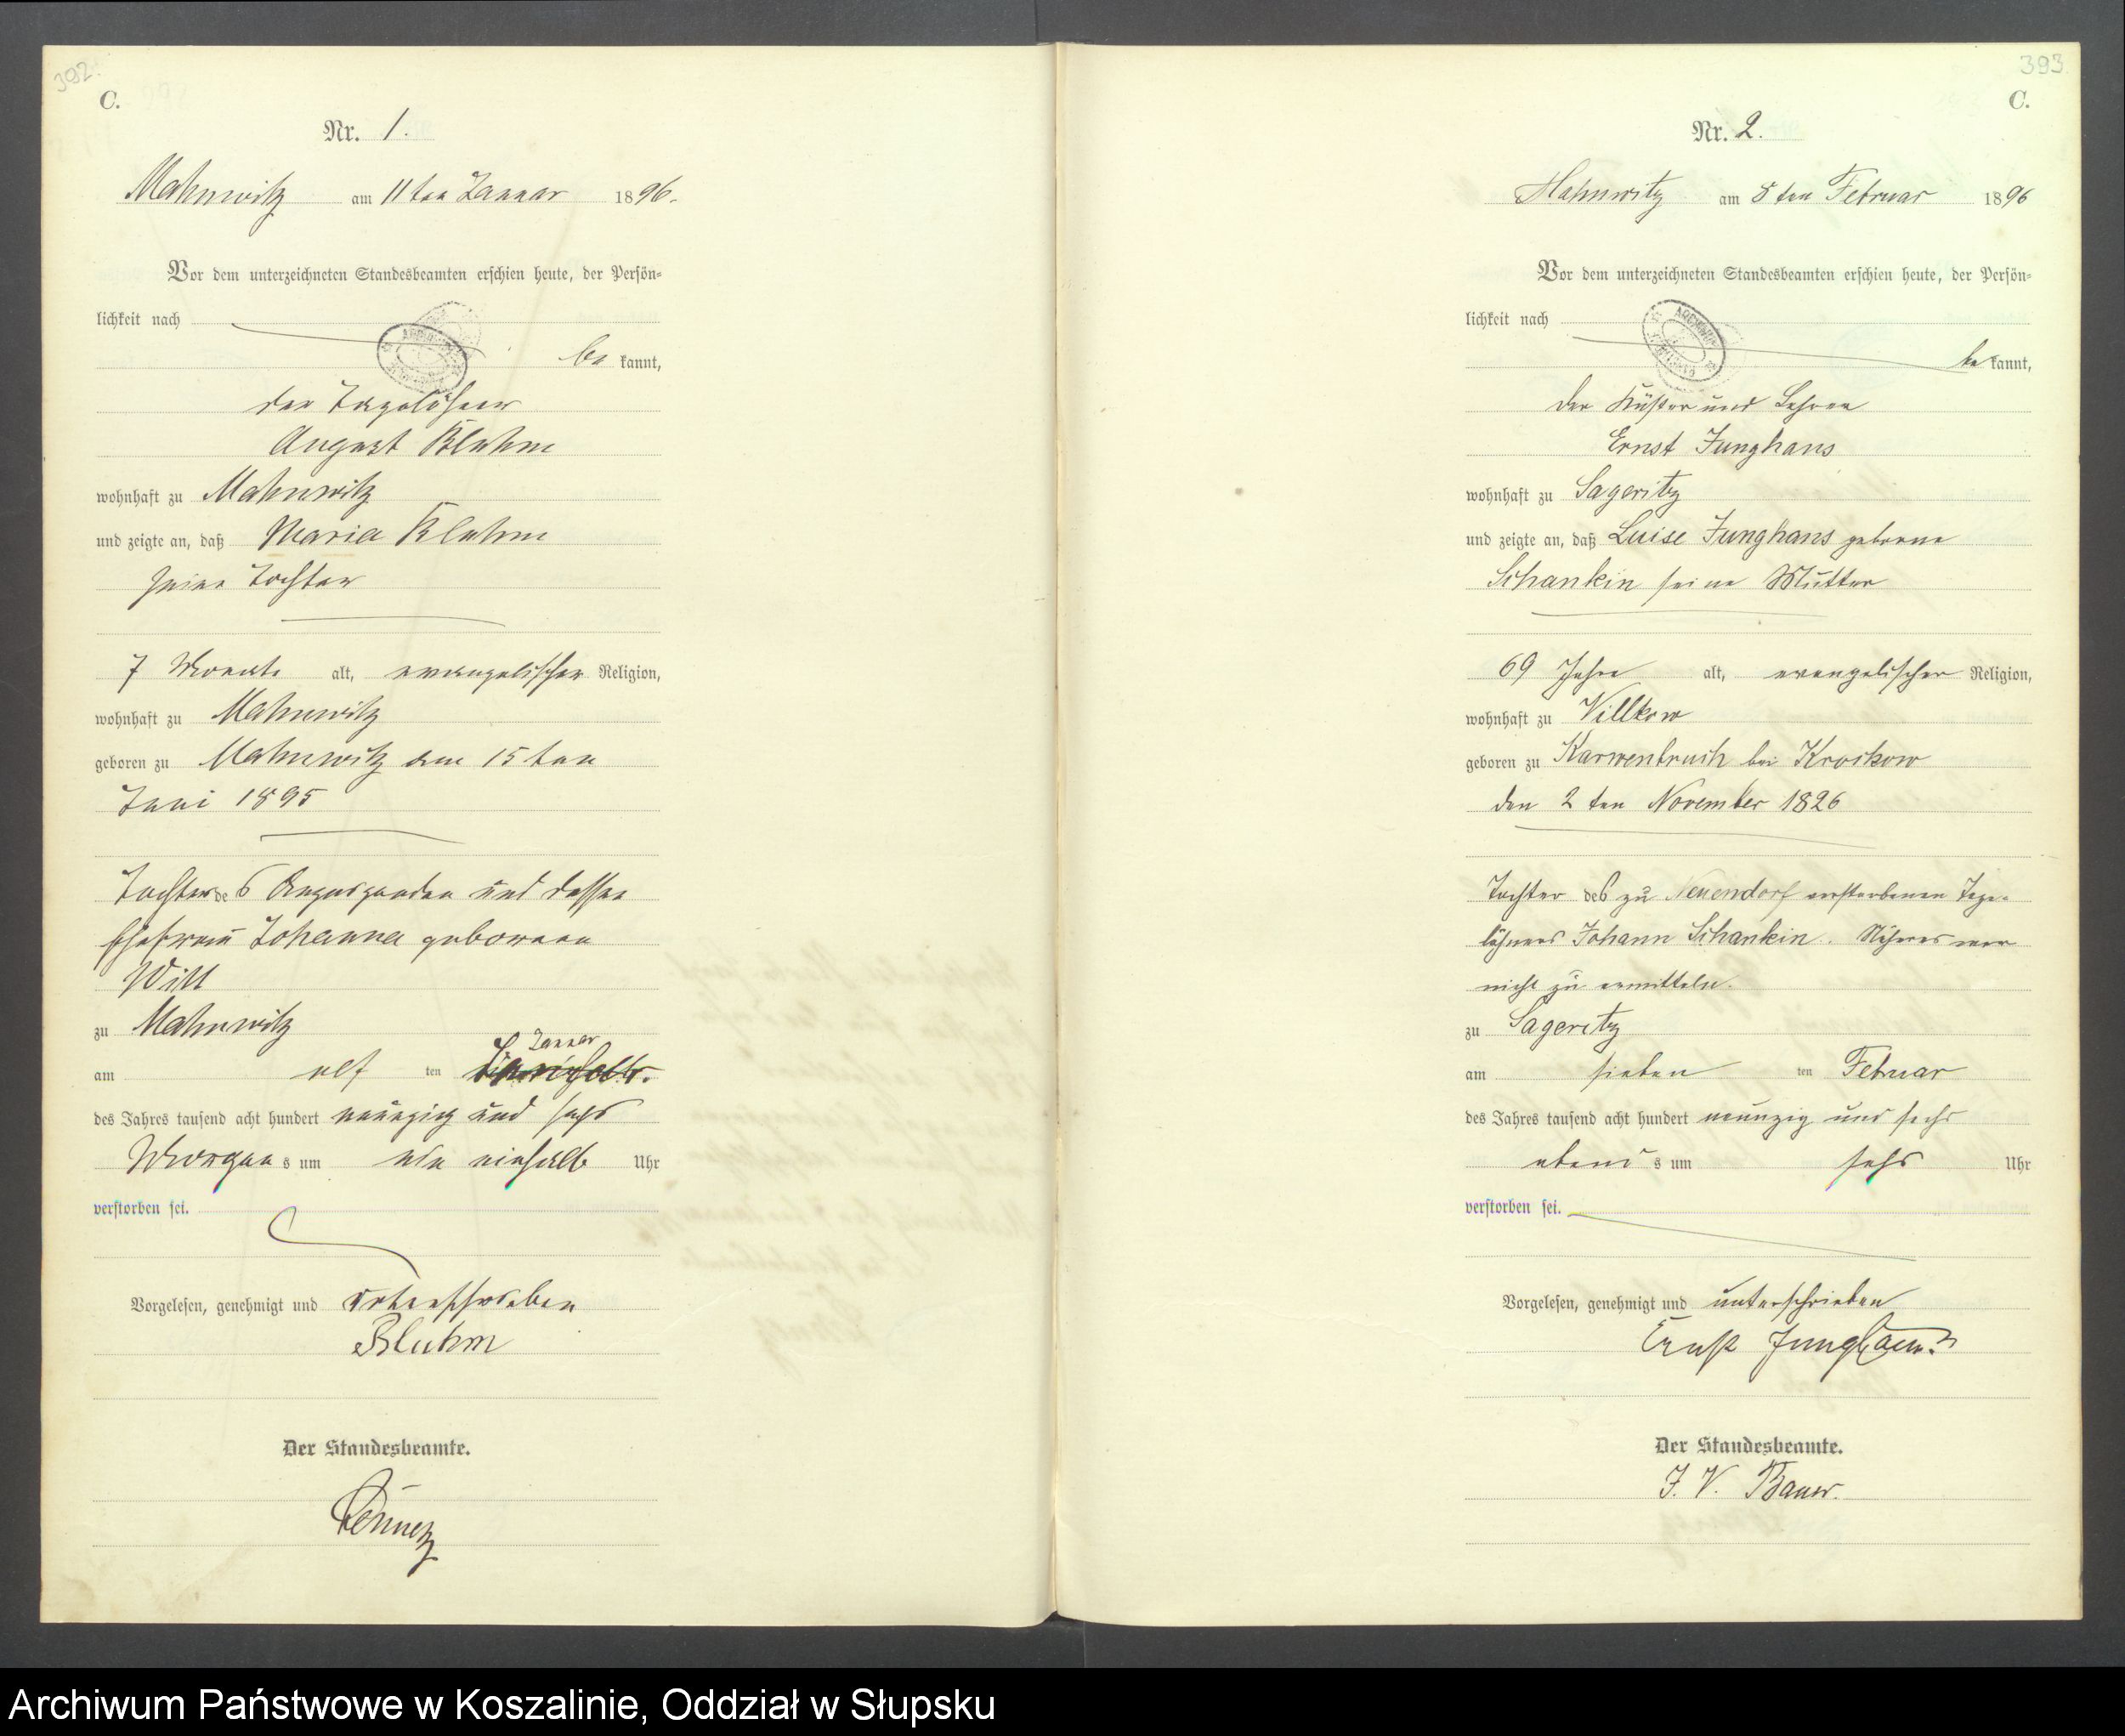 392.
C.
Nr. 1.
Mahnwitz am 11ten Januar 1896.
Vor dem unterzeichneten Standesbeamten erschien heute, der Persön-
lichkeit nach
be kannt,
der Tagelöhner
August Bluhm
wohnhaft zu Mahnwitz
und zeigte an, daß Maria Bluhm
seine Tochter
7 Monate alt, evangelischer Religion,
wohnhaft zu Mahnwitz
geboren zu Mahnwitz am 15ten
Juni 1895
Tochter des Angezeigenden und dessen
Ehefrau Johanna geborene
Witt
zu Mahnwitz
Januar
am elf ten
des Jahres tausend acht hundert neunzig und sechs
Morgens um ein einhalb Uhr
verstorben sei.
Vorgelesen, genehmigt und unterschrieben
Bluhm
Der Standesbeamte.
393
C.
Nr. 2.
Mahnwitz am 8ten Februar 1896
Vor dem unterzeichneten Standesbeamten erschien heute, der Persön-
lichkeit nach
be kannt,
der Küster und Lehrer
Ernst Junghans
wohnhaft zu Sageritz
und zeigte an, daß Luise Junghans geborene
Schankin seine Mutter
69 Jahre alt, evangelischer Religion,
wohnhaft zu Villkow
geboren zu Karwenbruch bei Krockow
den 2ten November 1826
Tochter des zu Neuendorf verstorbenen Tage-
löhners Johann Schankin. Näheres war
nicht zu ermitteln.
zu Sageritz
am sieben ten Februar
des Jahres tausend acht hundert neunzig und sechs
abends um sechs Uhr
verstorben sei.
Vorgelesen, genehmigt und unterschrieben
Ernst Junghans
Der Standesbeamte.
J. V. Bauer.
Archiwum Państwowe w Koszalinie, Oddział w Słupsku